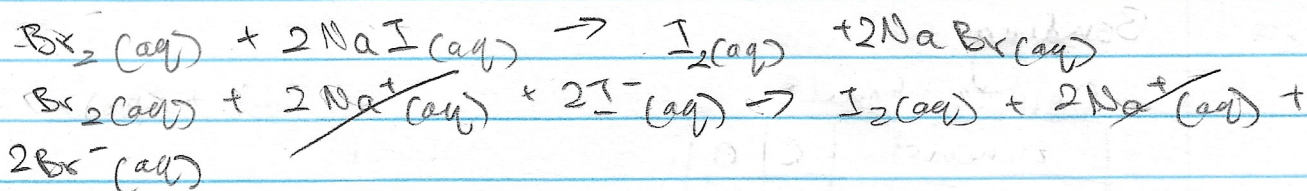 Br₂ (aq) + 2NaI (aq) → I₂(aq) +2NaBr(aq)
Br₂(aq) + 2Na⁺(aq) + 2I⁻(aq) → I₂(aq) + 2Na⁺(aq) +
2Br⁻(aq)